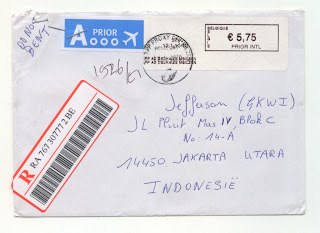 DO NOT
BENT
A PRIOR
BELGIQUE
€ 5,75
PRIOR INTL
1526/
R
RA 767 30777 2 BE
Jefferson (GKWI)
JL Pluit Mas IV Blok C
No. 14-A
14450 JAKARTA UTARA
INDONESIË